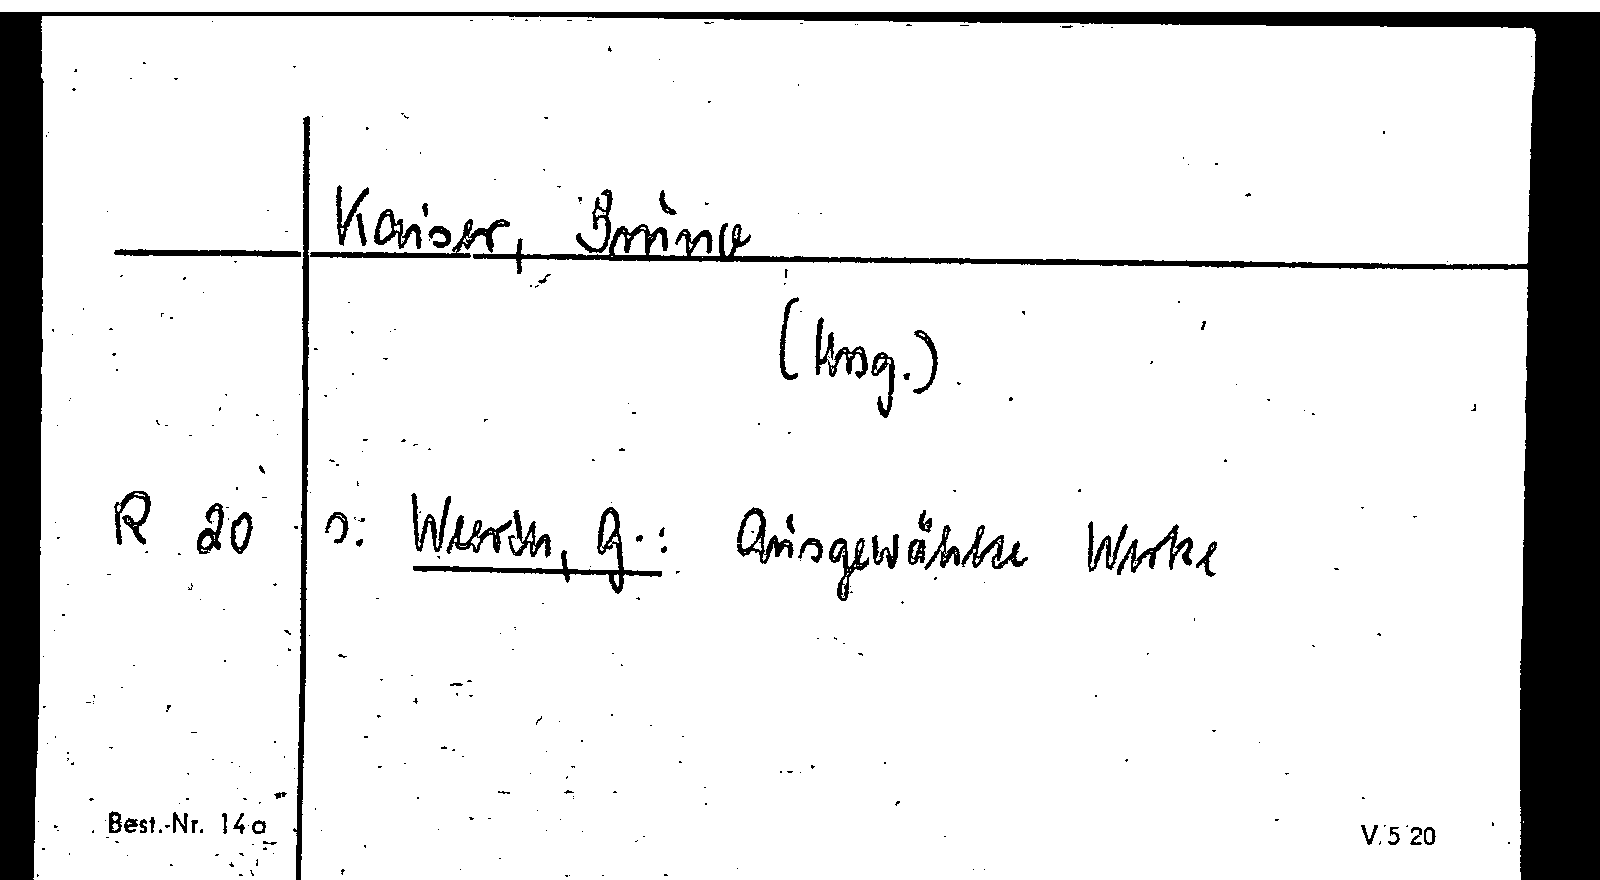 Kaiser, Bruno
(Hrsg.)
R 20 s: Weerth, G.: Ausgewählte Werke
Best.-Nr. 14a V 5 20